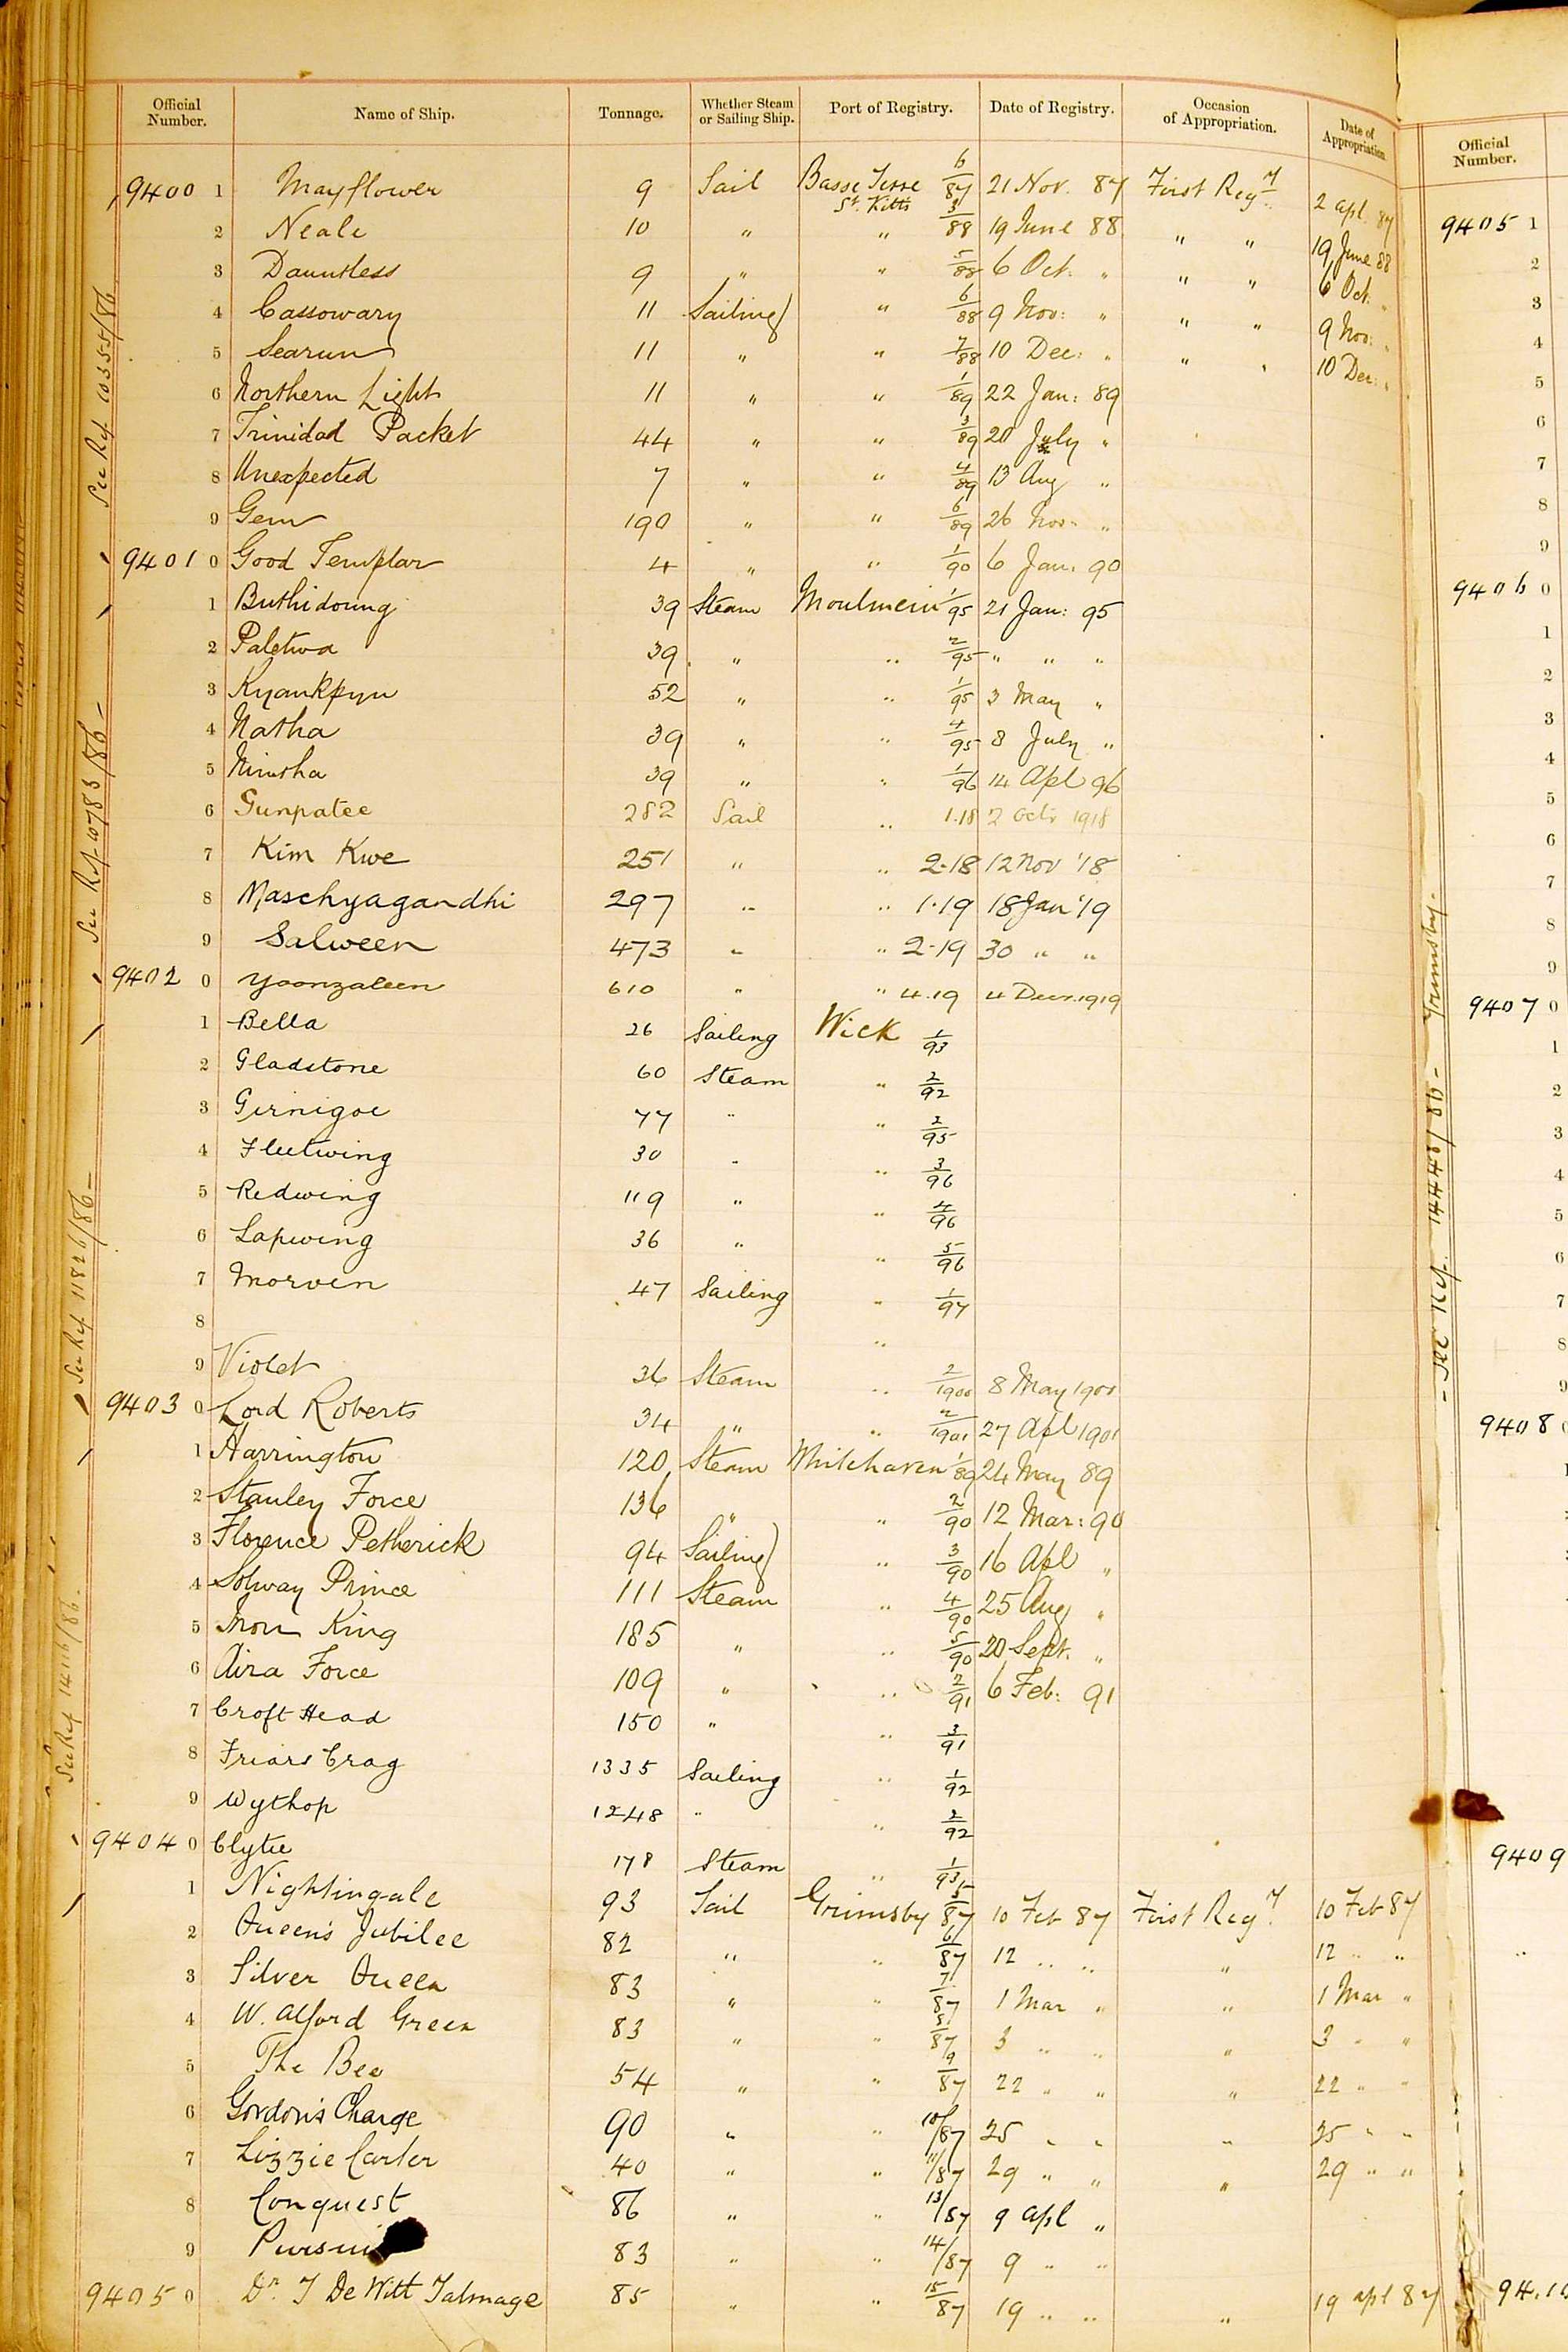 Official Number. Name of Ship. Tonnage. Whether Steam or Sailing Ship. Port of Registry. Date of Registry. Occasion of Appropriation. Date of Appropriation.
9400 1 Mayflower 9 Sail Basse Terre St. Kitts 6/87 21 Nov. 87 First Regy. 2 apl. 87
2 Neale 10 " " 3/88 19 June 88 " " 19 June 88
3 Dauntless 9 " " 5/88 6 Oct. " " " 6 Oct. "
4 Cassowary 11 Sailing " 6/88 9 Nov: " " " 9 Nov: "
5 Searun 11 " " 7/88 10 Dec: " " " 10 Dec: "
6 Northern Light 11 " " 1/89 22 Jan: 89
7 Trinidad Packet 44 " " 3/89 20 July "
8 Unexpected 7 " " 4/89 13 Aug "
9 Gem 190 " " 6/89 26 Nov: "
9401 0 Good Templar 4 " " 1/90 6 Jan: 90
1 Buthidoung 39 Steam Moulmein 1/95 21 Jan: 95
2 Paletwa 39 " " 2/95 " " "
3 Kyaukpyu 52 " " 1/95 3 May "
4 Natha 39 " " 4/95 8 July "
5 Nirutha 39 " " 1/96 14 Apl 96
6 Gunpatee 282 Sail " 1.18 2 Octr 1918
7 Kim Kwe 251 " " 2-18 12 Nov '18
8 Maschyagandhi 297 " " 1.19 18 Jan '19
9 Salween 473 " " 2-19 30 " "
9402 0 Yoonzaleen 610 " " 4.19 4 Decr. 1919
1 Bella 26 Sailing Wick 1/93
2 Gladstone 60 Steam " 2/92
3 Girnigoe 77 " " 2/95
4 Fleetwing 30 " " 3/96
5 Redwing 119 " " 4/96
6 Lapwing 36 " " 5/96
7 Morven 47 Sailing " 1/97
8 "
9 Violet 36 Steam " 2/1900 8 May 1900
9403 0 Lord Roberts 34 " " 2/1901 27 Apl 1901
1 Harrington 120 Steam Whitehaven 1/89 24 May 89
2 Stanley Force 136 " " 2/90 12 Mar: 90
3 Florence Petherick 94 Sailing " 3/90 16 Apl "
4 Solway Prince 111 Steam " 4/90 25 Aug "
5 Iron King 185 " " 5/90 20 Sept. "
6 Aira Force 109 " " 2/91 6 Feb: 91
7 Croft Head 150 " " 3/91
8 Friars Crag 1335 Sailing " 1/92
9 Wythop 1248 " " 2/92
9404 0 Clytie 178 Steam " 1/93
1 Nightingale 93 Sail Grimsby 5/87 10 Feb 87 First Regy. 10 Feb 87
2 Queen's Jubilee 82 " " 6/87 12 " " " 12 " "
3 Silver Queen 83 " " 7/87 1 Mar " " 1 Mar "
4 W. Alford Green 83 " " 8/87 3 " " " 3 " "
5 The Bee 54 " " 9/87 22 " " " 22 " "
6 Gordon's Charge 90 " " 10/87 25 " " " 25 " "
7 Lizzie Carter 40 " " 11/87 29 " " " 29 " "
8 Conquest 86 " " 13/87 9 apl "
9 Pursui 83 " " 14/87 9 " "
9405 0 Dr. T De Witt Talmage 85 " " 15/87 19 " " " 19 apl 87
See Ref 10355/86
See Ref 10783/86 -
See Ref 11826/86 -
See Ref 14116/86.
Official Number.
9405 1
2
3
4
5
6
7
8
9
9406 0
1
2
3
4
5
6
7
8
9
9407 0
1
2
3
4
5
6
7
8
9
9408
9409
- See Ref. 14448/86 - Grimsby.